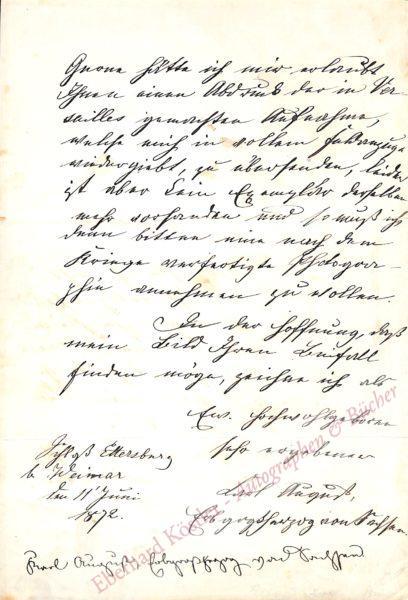 Gerne hätte ich mir erlaubt
Ihnen einen Abdruck der in Ver-
sailles gemachten Aufnahme,
welche mich in vollem Feldanzuge
wiedergiebt, zu übersenden, leider
ist aber kein Exemplar derselben
mehr vorhanden und so muß ich
denn bitten eine nach dem
Kriege verfertigte Photogra-
phie annehmen zu wollen.
In der Hoffnung, daß
mein Bild Ihren Beifall
finden möge, zeichne ich als
Ew. Hochwohlgeboren
sehr ergebener
Carl August,
Erbgroßherzog von Sachsen
Schloß Ettersburg
b. Weimar
den 11 Juni
1872.
Karl August Erbgroßherzog von Sachsen
Autographen & Bücher